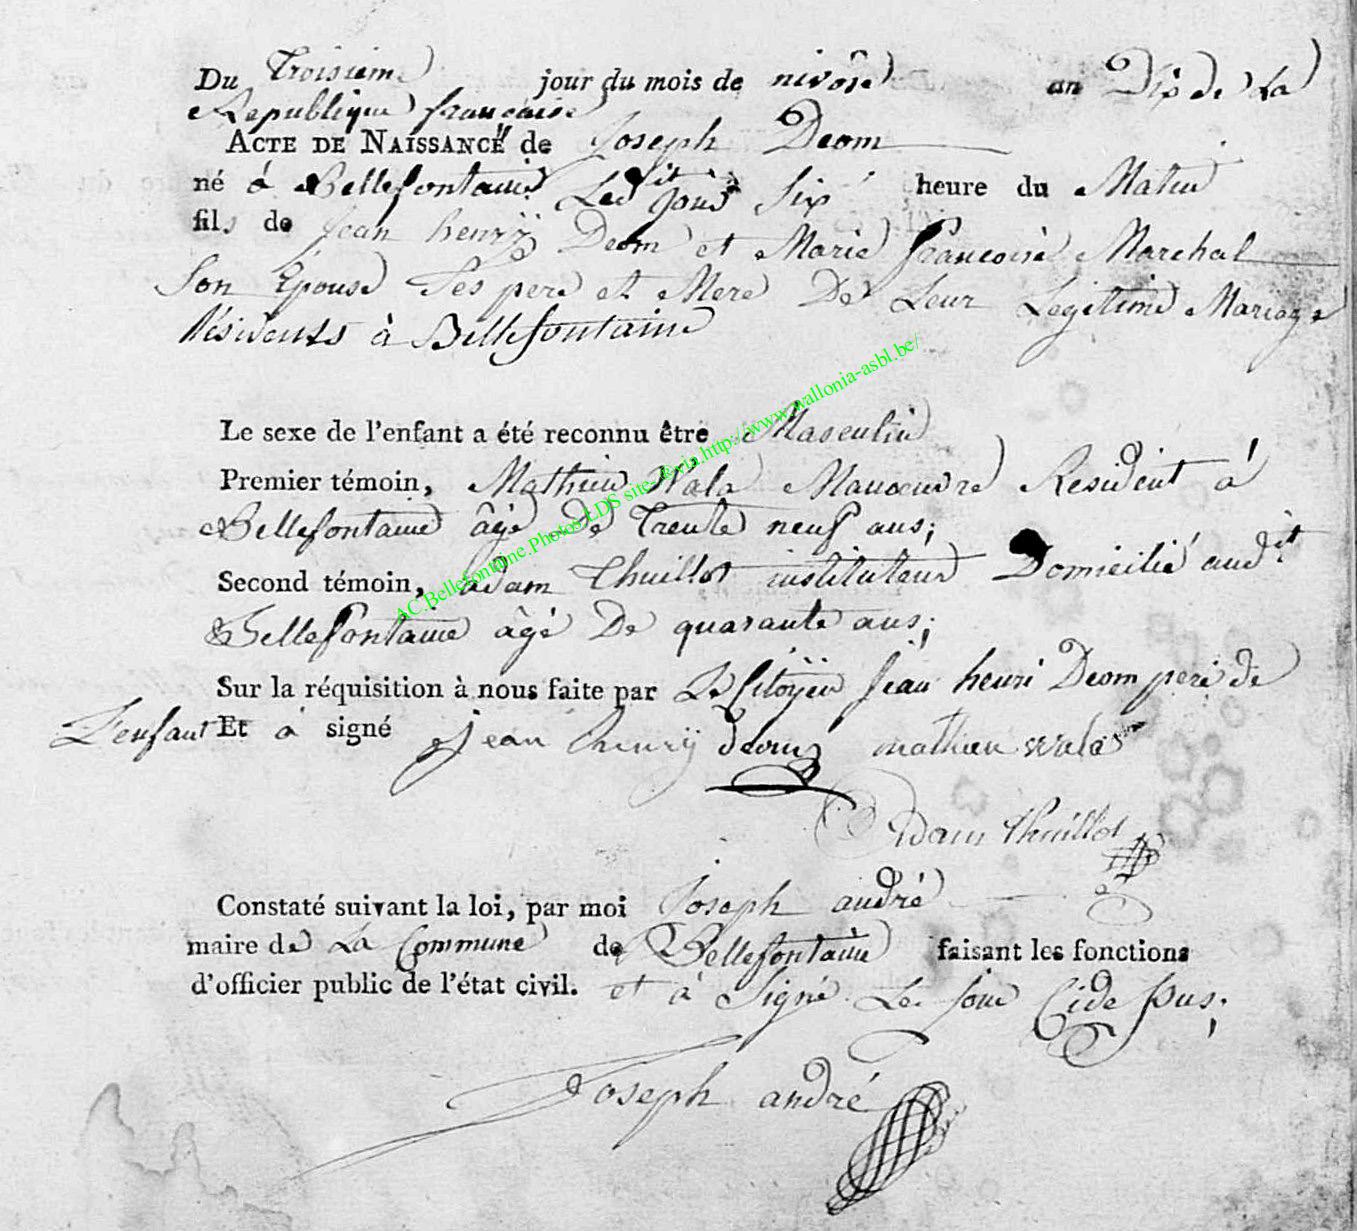 Du Troisieme jour du mois de nivôse an Dix de La
Republique française
ACTE DE NAISSANCE de Joseph Deom
né à Bellefontaine Led.it jour Six heure du Matin
fils de Jean henrÿ Deom et Marie françoise Marchal
Son Epouse Ses pere et Mere De Leur Legitime Mariage
Résidents à Bellefontaine
Le sexe de l'enfant a été reconnu être Masculin
Premier témoin, Mathieu Wala Manoeuvre Resident à
Bellefontaine âgé de Trente neuf ans;
Second témoin, adam Thuillot instituteur Domicilié aud.it
Bellefontaine âgé De quarante ans;
Sur la réquisition à nous faite par Le Citoÿen Jean henri Deom pere de
L'enfant Et à signé jean henrÿ deom mathieu wala
Adam Thuillot
Constaté suivant la loi, par moi Joseph andré
maire de La Commune de Bellefontaine faisant les fonctions
d'officier public de l'état civil. et à Signé Le Jour Cide Sus;
Joseph andré
AC.Bellefontaine.Photos LDS site-@via.http://www.wallonia-asbl.be/